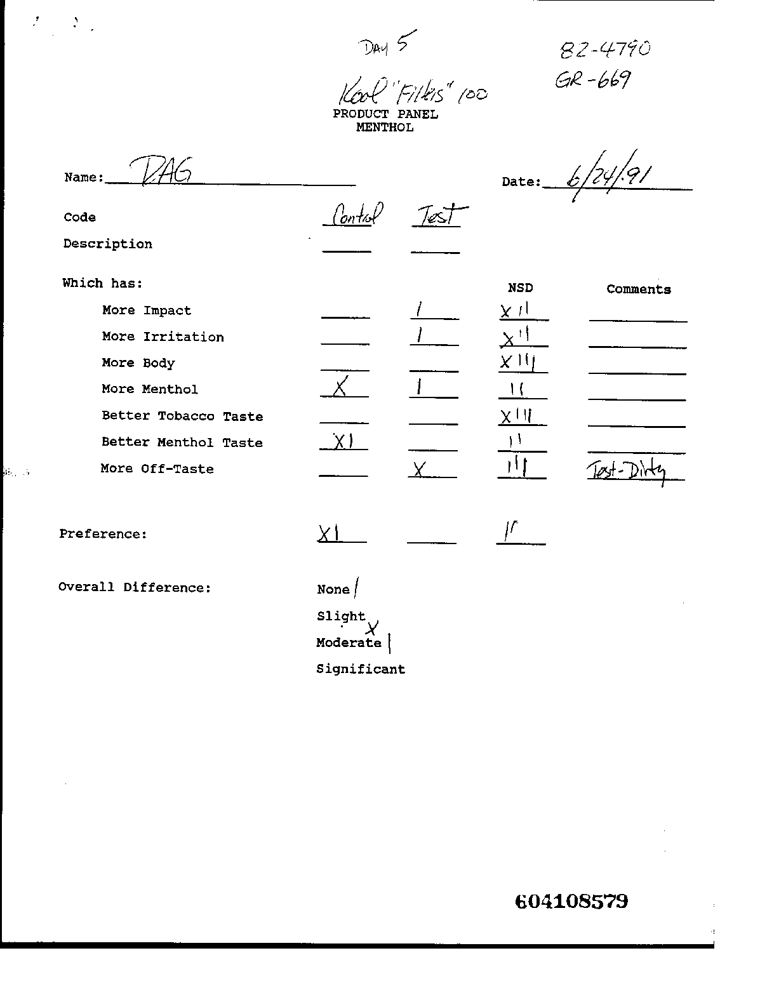 DAY 5
82-4790
GR-669
Kool "Filters" 100
PRODUCT PANEL
MENTHOL
Name: DAG Date: 6/24/91
Code Control Test
Description
Which has: NSD Comments
More Impact / X II
More Irritation / X II
More Body X III
More Menthol X I II
Better Tobacco Taste X III
Better Menthol Taste XI II
More Off-Taste X III Test-Dirty
Preference: XI II
Overall Difference: None /
Slight
X
Moderate |
Significant
604108579